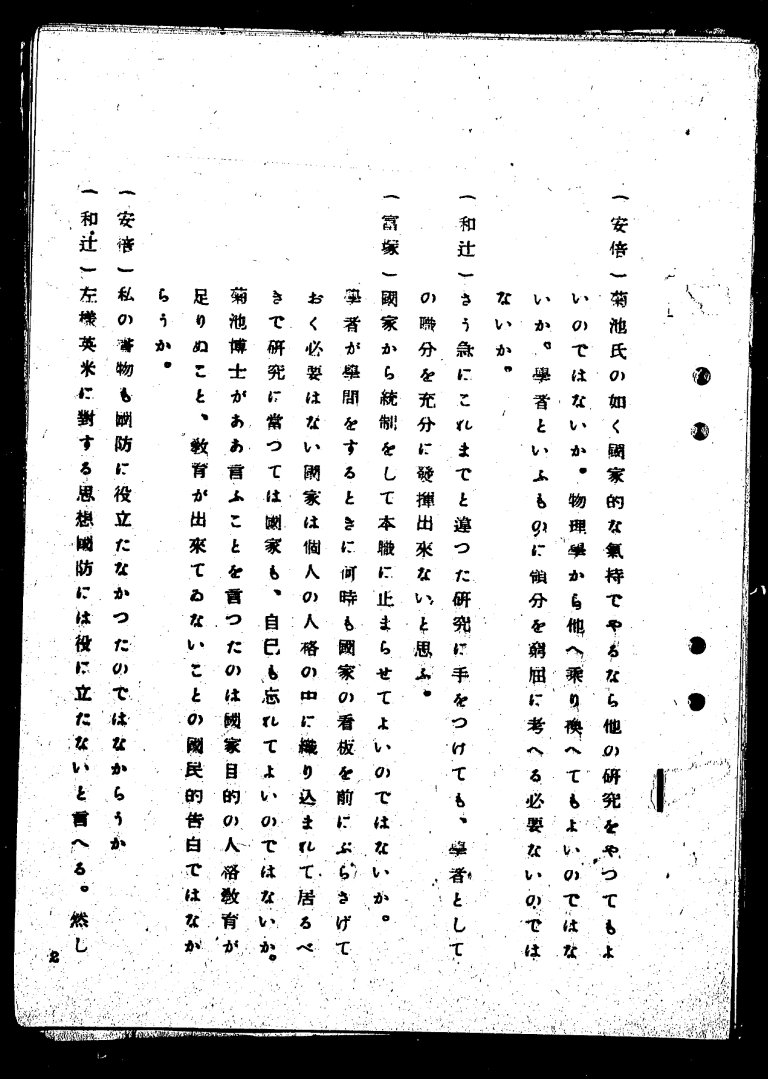 (安倍)菊池氏の如く國家的な氣持でやるなら他の研究をやつてもよ
いのではないか。物理學から他へ乘り換へてもよいのではな
いか。學者といふものに領分を窮屈に考へる必要ないのでは
ないか。
(和辻)さう急にこれまでと違つた研究に手をつけても、學者として
の職分を充分に發揮出來ないと思ふ。
(富塚)國家から統制をして本職に止まらせてよいのではないか。
學者が學問をするときに何時も國家の看板を前にぶらさげて
おく必要はない國家は個人の人格の中に織り込まれて居るべ
きで研究に當つては國家も、自己も忘れてよいのではないか。
菊池博士がああ言ふことを言つたのは國家目的の人格敎育が
足りぬこと、敎育が出來てゐないことの國民的告白ではなか
らうか。
(安倍)私の著物も國防に役立たなかつたのではなからうか
(和辻)左樣英米に對する思想國防には役に立たないと言へる。然し
2
八